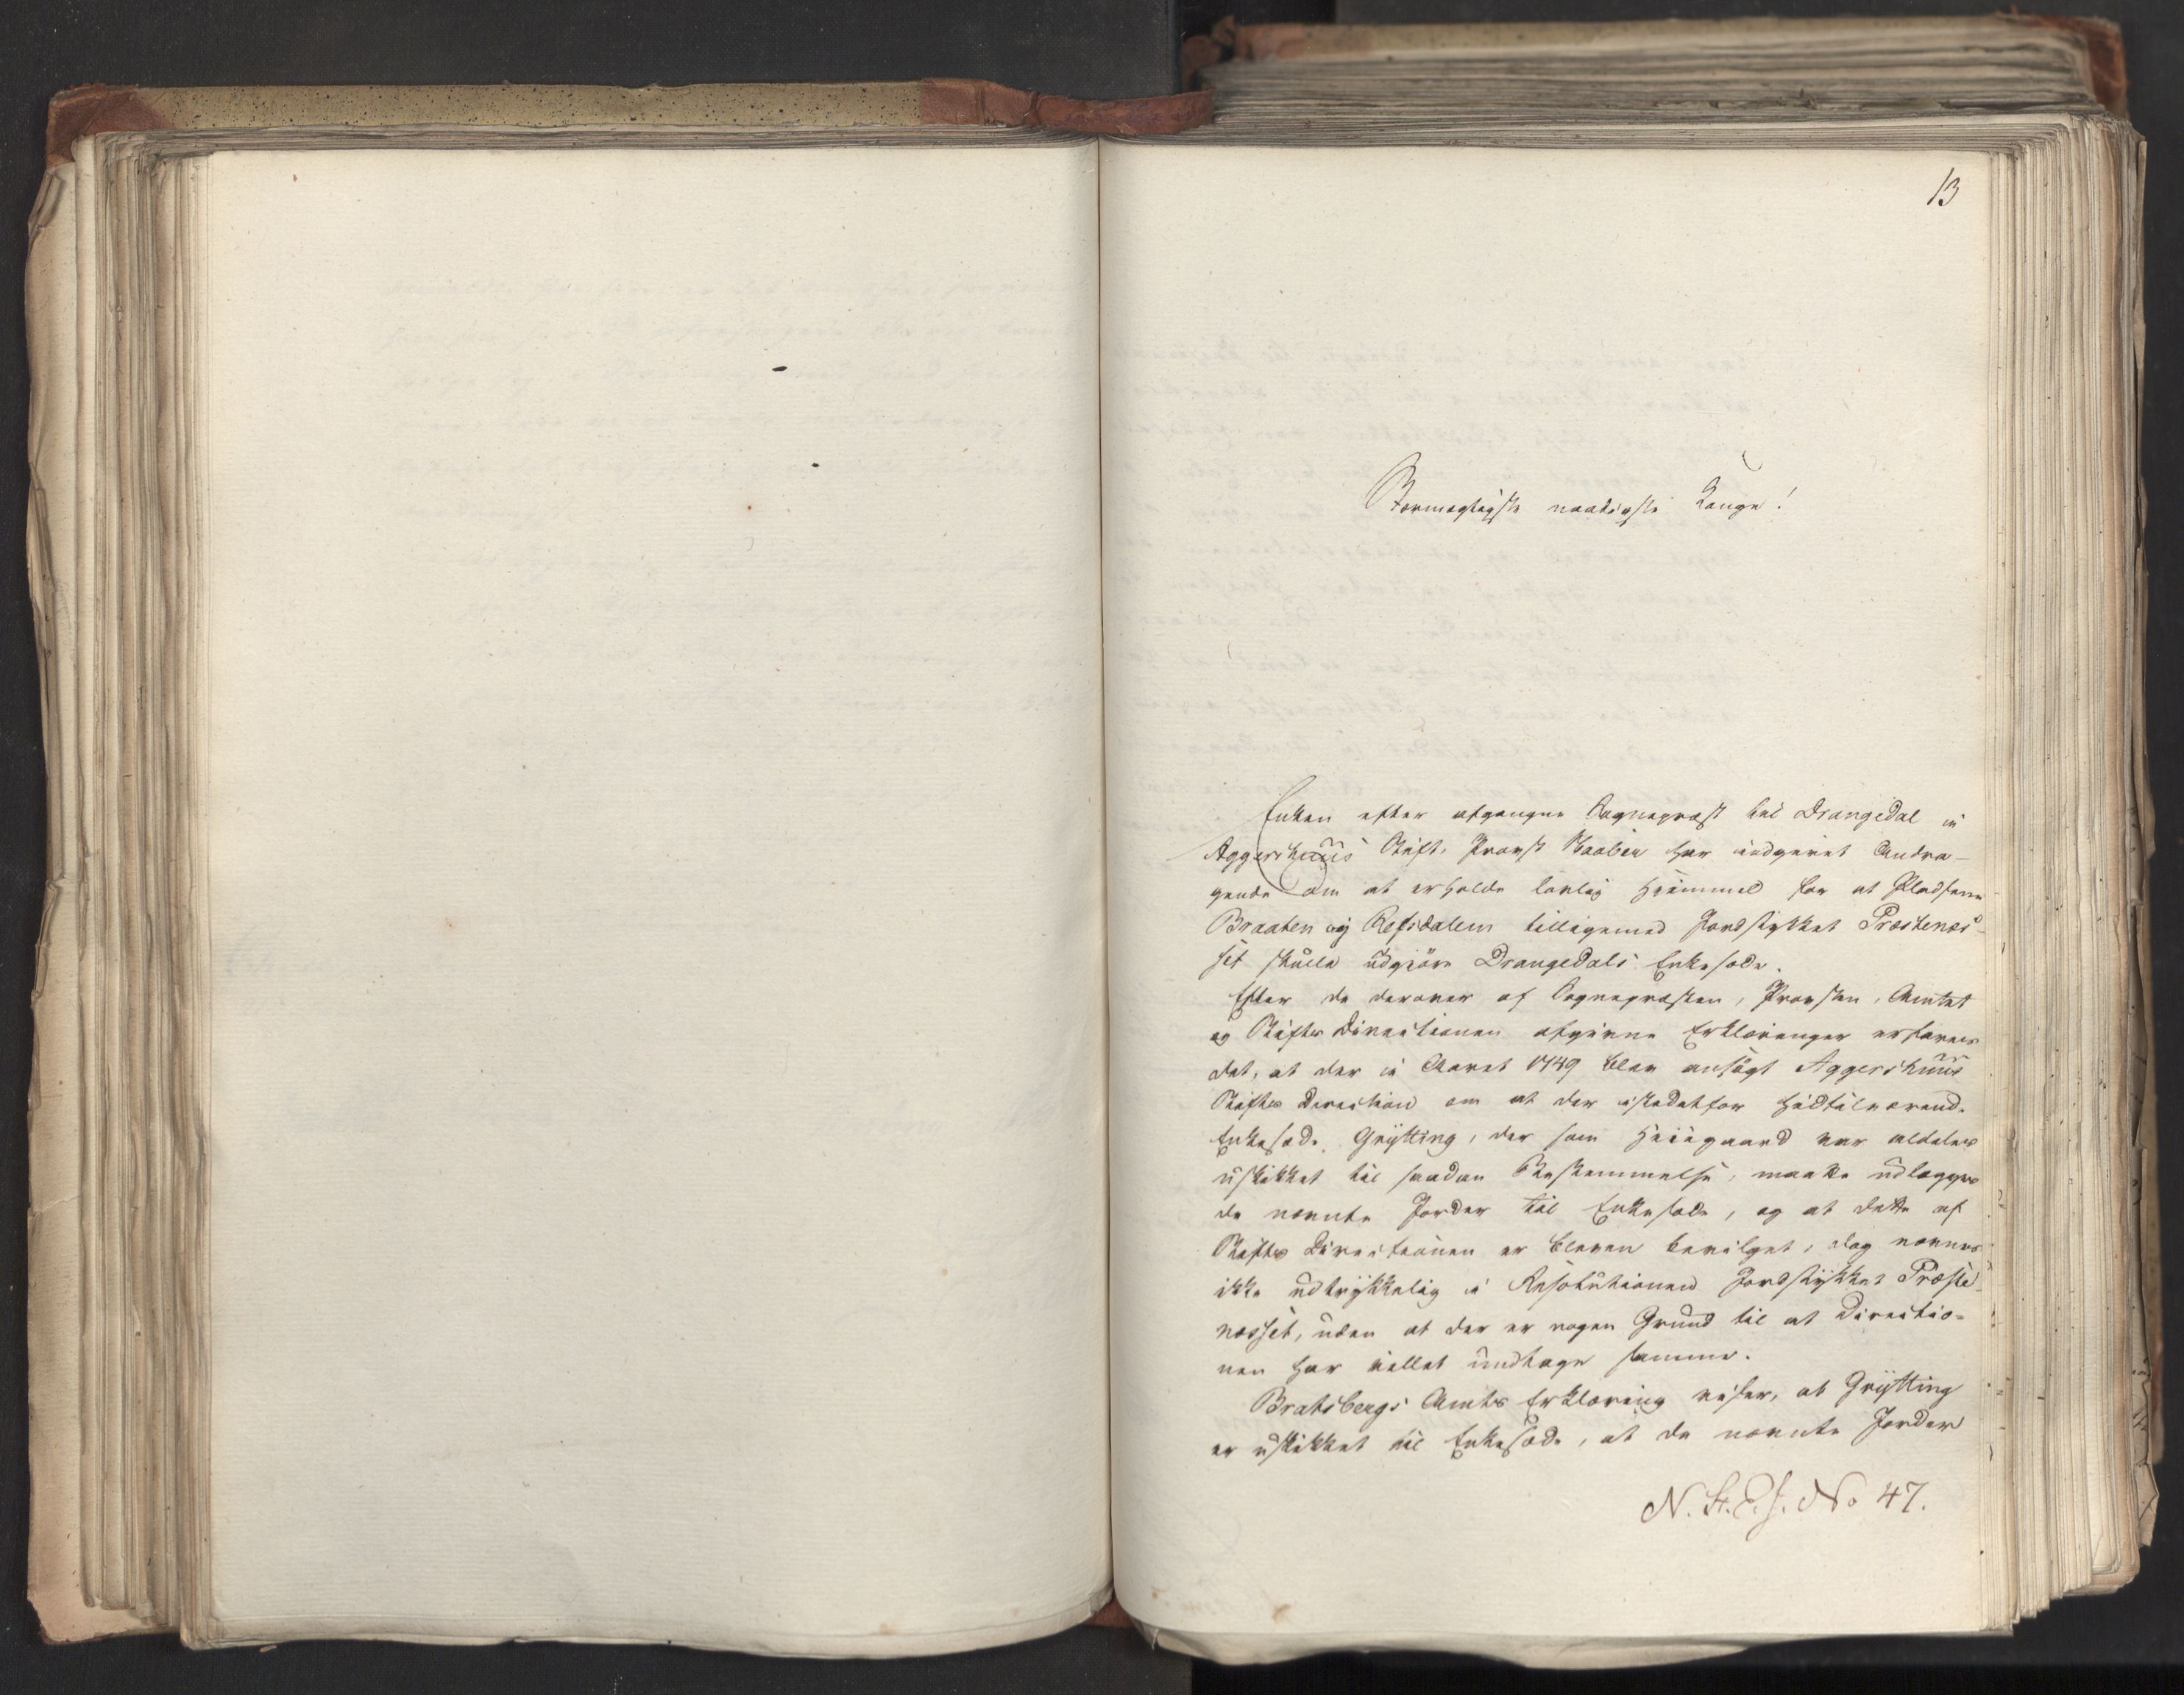 13
Stormægtigste naadigste Konge!
Enken efter afgangne Sognepræst til Drangedal i
Aggershuus Stift, Provst Kaabin har indgivet Andra-
gende om at erholde lovlig Hjemmel for at Pladsene
Braaten og Refsdalen tilligemed Jordstykket Præstenæs-
set skulle udgjøre Drangedals Enkesæde.
Efter de derover af Sognepræsten, Provsten, Amtet
og Stifts Directionen afgivne Erklæringer erfares
det, at der i Aaret 1749 blev ansøgt Aggershuus
Stifts Direction om at der istedetfor hidtilværende
Enkesæde, Grÿtting, der som Heiegaard var aldeles
uskikket til saadan Bestemmelse, maatte udlægges
de nævnte Jorder til Enkesæde, og at dette af
Stifts Directionen er bleven bevilget, dog nævnes
ikke udtrykkelig i Resolutionen Jordstykket Præste-
næsset, uden at der er nogen Grund til at Directio-
nen har villet undtage samme.
Bratsbergs Amts Erklæring viser, at Grÿtting
er uskikket til Enkesæde, at de nævnte Jorder
N. St. E. f. No 47.